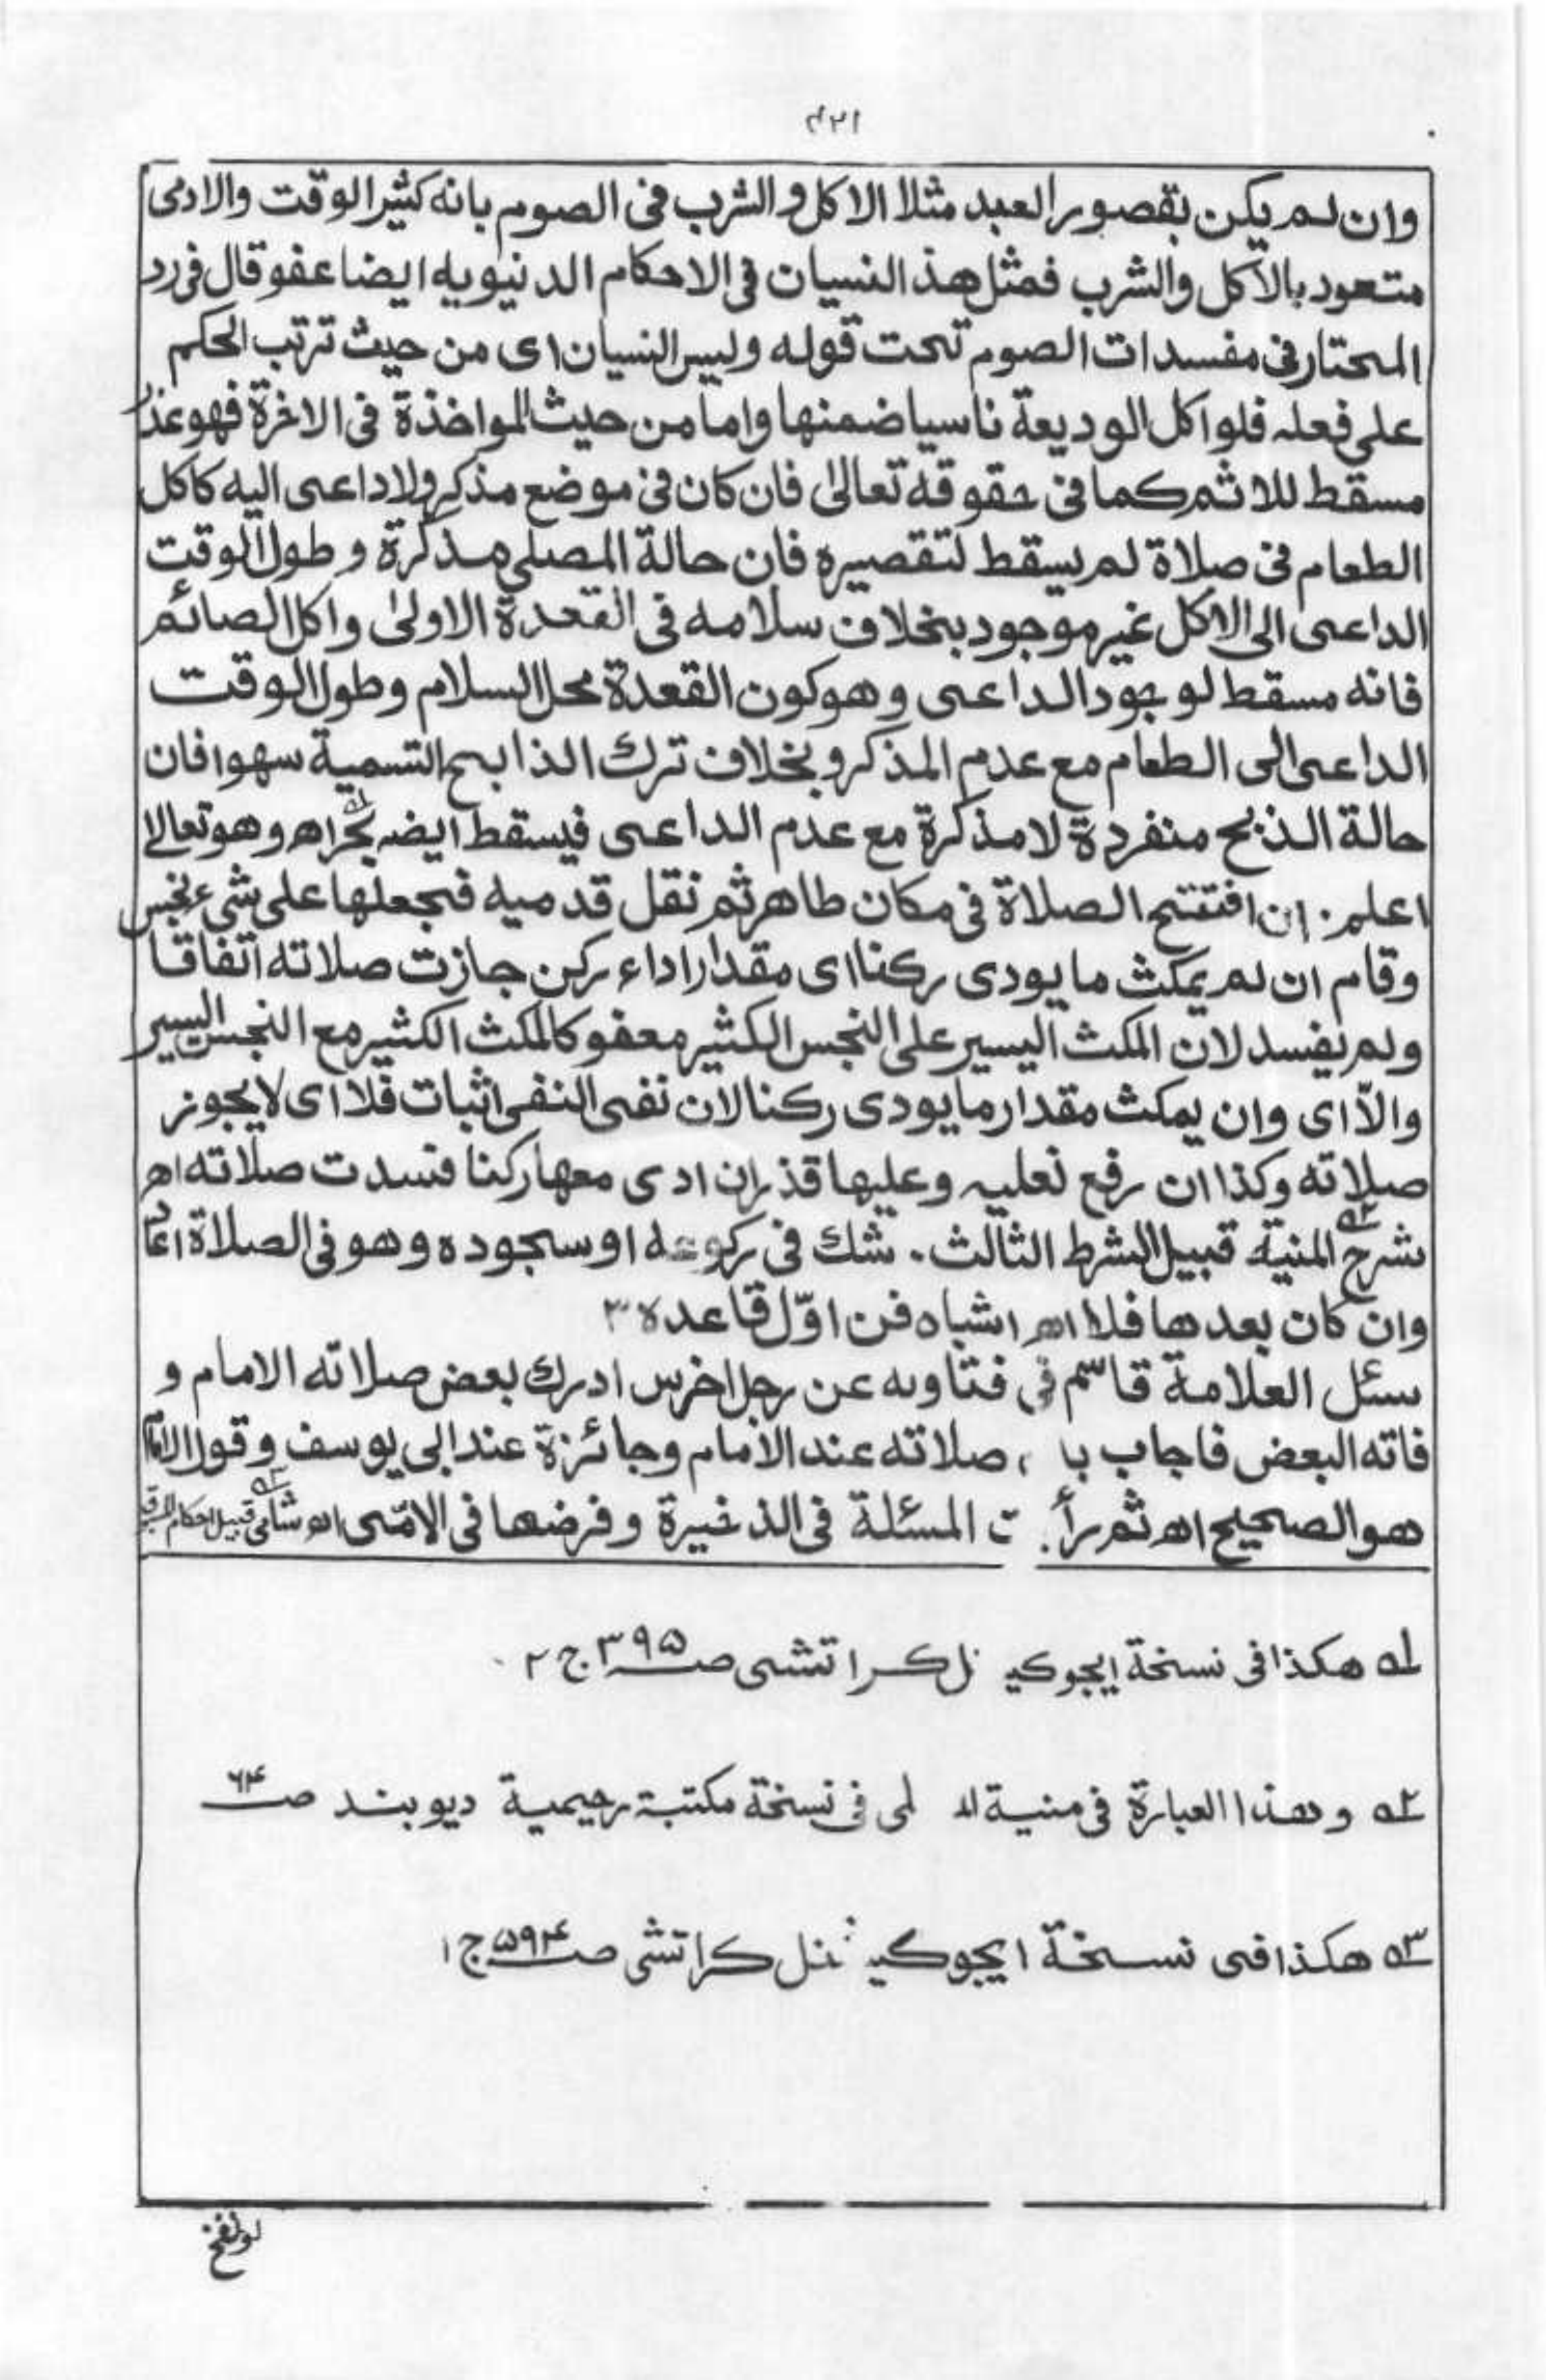 ۴۲۱
وان لم يكن بقصور العبد مثلا الاكل والشرب فى الصوم بانه كثير الوقت والادمى
متعود بالاكل والشرب فمثل هذ النسيان فى الاحكام الدنيويه ايضا عفو قال فى رد
المحتار فى مفسدات الصوم تحت قوله وليس النسيان اى من حيث ترتب الحكم
على فعله فلو اكل الوديعة ناسيا ضمنها واما من حيث المواخذة فى الاخرة فهو عذر
مسقط للاثم كما فى حقوقه تعالىٰ فان كان فى موضع مذكر ولا داعى اليه كاكل
الطعام فى صلاة لم يسقط لتقصيره فان حالة المصلى مذكرة وطول الوقت
الداعى الى الاكل غير موجود بخلاف سلامه فى القعدة الاولىٰ واكل الصائم
فانه مسقط لوجود الداعى وهو كون القعدة محل السلام وطول الوقت
الداعى الى الطعام مع عدم المذكر وبخلاف ترك الذابح التسمية سهوا فان
حالة الذبح منفردة لا مذكرة مع عدم الداعى فيسقط ايضه بحر اھ وهو تعالے
اعلم۔ ان افتتح الصلاة فى مكان طاهر ثم نقل قدميه فجعلها على شىء نجس
وقام ان لم يمكث ما يودى ركنا اى مقدار اداء ركن جازت صلاته اتفاقا
ولم يفسد لان المكث اليسير على النجس الكثير معفو كالمكث الكثير مع النجس اليسير
والاّ اى وان يمكث مقدار ما يودى ركنا لان نفى النفى اثبات فلا اى لا يجوز
صلاته وكذا ان رفع نعليه وعليها قذر ان ادى معها ركنا فسدت صلاته اھ
شرح المنية ٢ه قبيل الشرط الثالث۔ شك فى ركوعه او سجوده وهو فى الصلاة اعاد
وان كان بعدها فلا اھ اشباه فن اوّل قاعده ٣
سئل العلامة قاسم فى فتاويه عن رجل اخرس ادرك بعض صلاته الامام و
فاته البعض فاجاب با ، صلاته عند الامام وجائزة عند ابى يوسف وقول الامام
هو الصحيح اھ ثم رأ ت المسئلة فى الذخيرة وفرضها فى الامّى اھ شامى ٣ه قبيل احكام
١ه هكذا فى نسخة ايجوكيـ ـنل كراتشى صـ٣٩٥ ج ٢
٢ه وهذا العبارة فى منية الـ ـلى فى نسخة مكتبة رحيمية ديوبند صـ۶۴
٣ه هكذا فى نسخة ايجوكيـ ـنل كراتشى صـ۵۹۴ ج ١